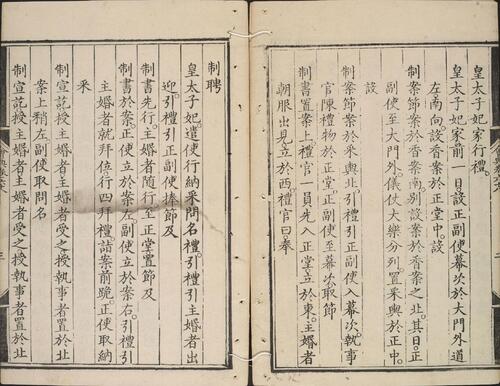 皇太子妃家行禮。
皇太子妃家前一日設正副使幕次於大門外道
左南向設香案於正堂中。設
制案節案於香案南别設案於香案之北。其日。正
副使至大門外。儀仗大樂分列。置采輿於正中。
設
制案節案於采輿北。引禮引正副使入幕次。執事
官陳禮物於正堂。正副使至幕次取節
制書置案上禮官一員先入正堂立於東。主婚者
朝服出見立於西禮官曰奉
制聘
皇太子妃。遣使行納采問名禮。引禮引主婚者出
迎。引禮引正副使捧節及
制書先行主婚者隨行至正堂置節及
制書於案正使立於案左副使立於案右。引禮引
主婚者就拜位行四拜禮詣案前跪。正使取納
采
制宣訖授主婚者主婚者受之授執事者置於北
案上稍左副使取問名
制宣訖授主婚者主婚者受之授執事者置於北